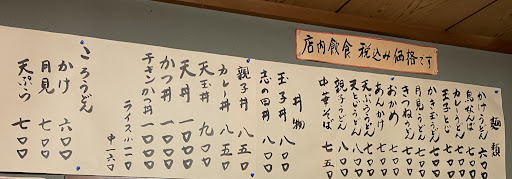 店内飲食 税込み価格です
麺類
かけうどん 六〇〇
鳥なんば 七〇〇
カレーうどん 七〇〇
玉子とじ 七〇〇
かき玉うどん 七〇〇
月見うどん 七〇〇
きつねうどん 七〇〇
おかめ
あんかけ
天ぷらうどん
天とじうどん
親子うどん
中華そば 七五〇
丼物
玉子丼 八〇〇
志の田丼 八〇〇
親子丼 八五〇
カレー丼 八五〇
天玉丼 九〇〇
天丼 一〇〇〇
カツ丼 一〇〇〇
チキンかつ丼 一〇〇〇
ライス小
中 一六〇
ころうどん
かけ 六〇〇
月見 七〇〇
天ぷら 七〇〇